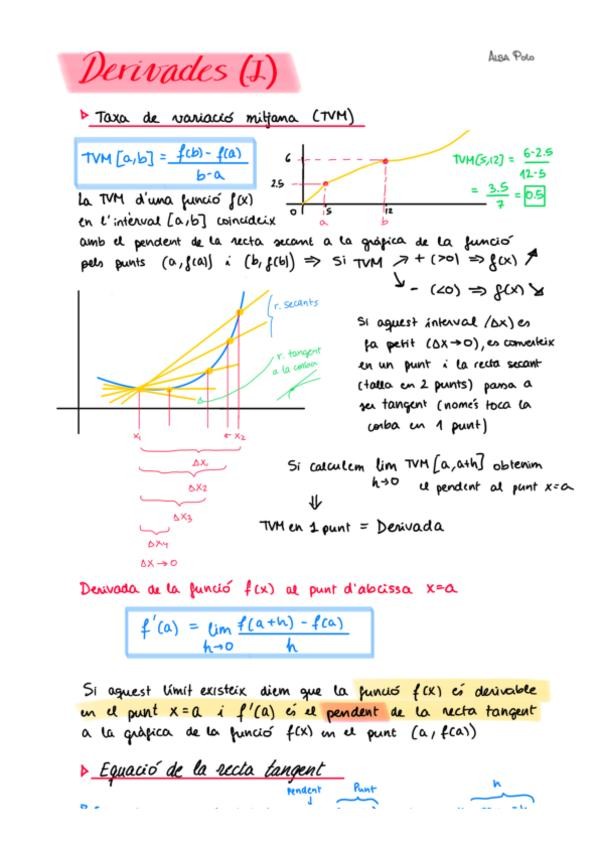 Derivades (I)
ALBA POLO
Taxa de variació mitjana (TVM)
TVM [a,b] = f(b) - f(a) / b-a
6
2.5
0
5
12
a
b
TVM[5,12] = 6-2.5 / 12-5
= 3.5 / 7 = 0.5
La TVM d'una funció f(x)
en l'interval [a,b] coincideix
amb el pendent de la recta secant a la gràfica de la funció
pels punts (a, f(a)) i (b, f(b)) ⇒ Si TVM ↗ + (>0) ⇒ f(x) ↗
↘ - (<0) ⇒ f(x) ↘
r. secants
r. tangent
a la corba
x₁
← x₂
Δx₁
Δx₂
Δx₃
Δx₄
Δx → 0
Si aquest interval (Δx) es
fa petit (Δx→0), es converteix
en un punt i la recta secant
(talla en 2 punts) passa a
ser tangent (només toca la
corba en 1 punt)
Si calculem lim TVM [a,a+h] obtenim
h→0
el pendent al punt x=a
⇓
TVM en 1 punt = Derivada
Derivada de la funció f(x) al punt d'abcissa x=a
f'(a) = lim f(a+h) - f(a) / h
h→0
Si aquest límit existeix diem que la funció f(x) és derivable
en el punt x=a i f'(a) és el pendent de la recta tangent
a la gràfica de la funció f(x) en el punt (a, f(a))
Equació de la recta tangent
Pendent
Punt
h